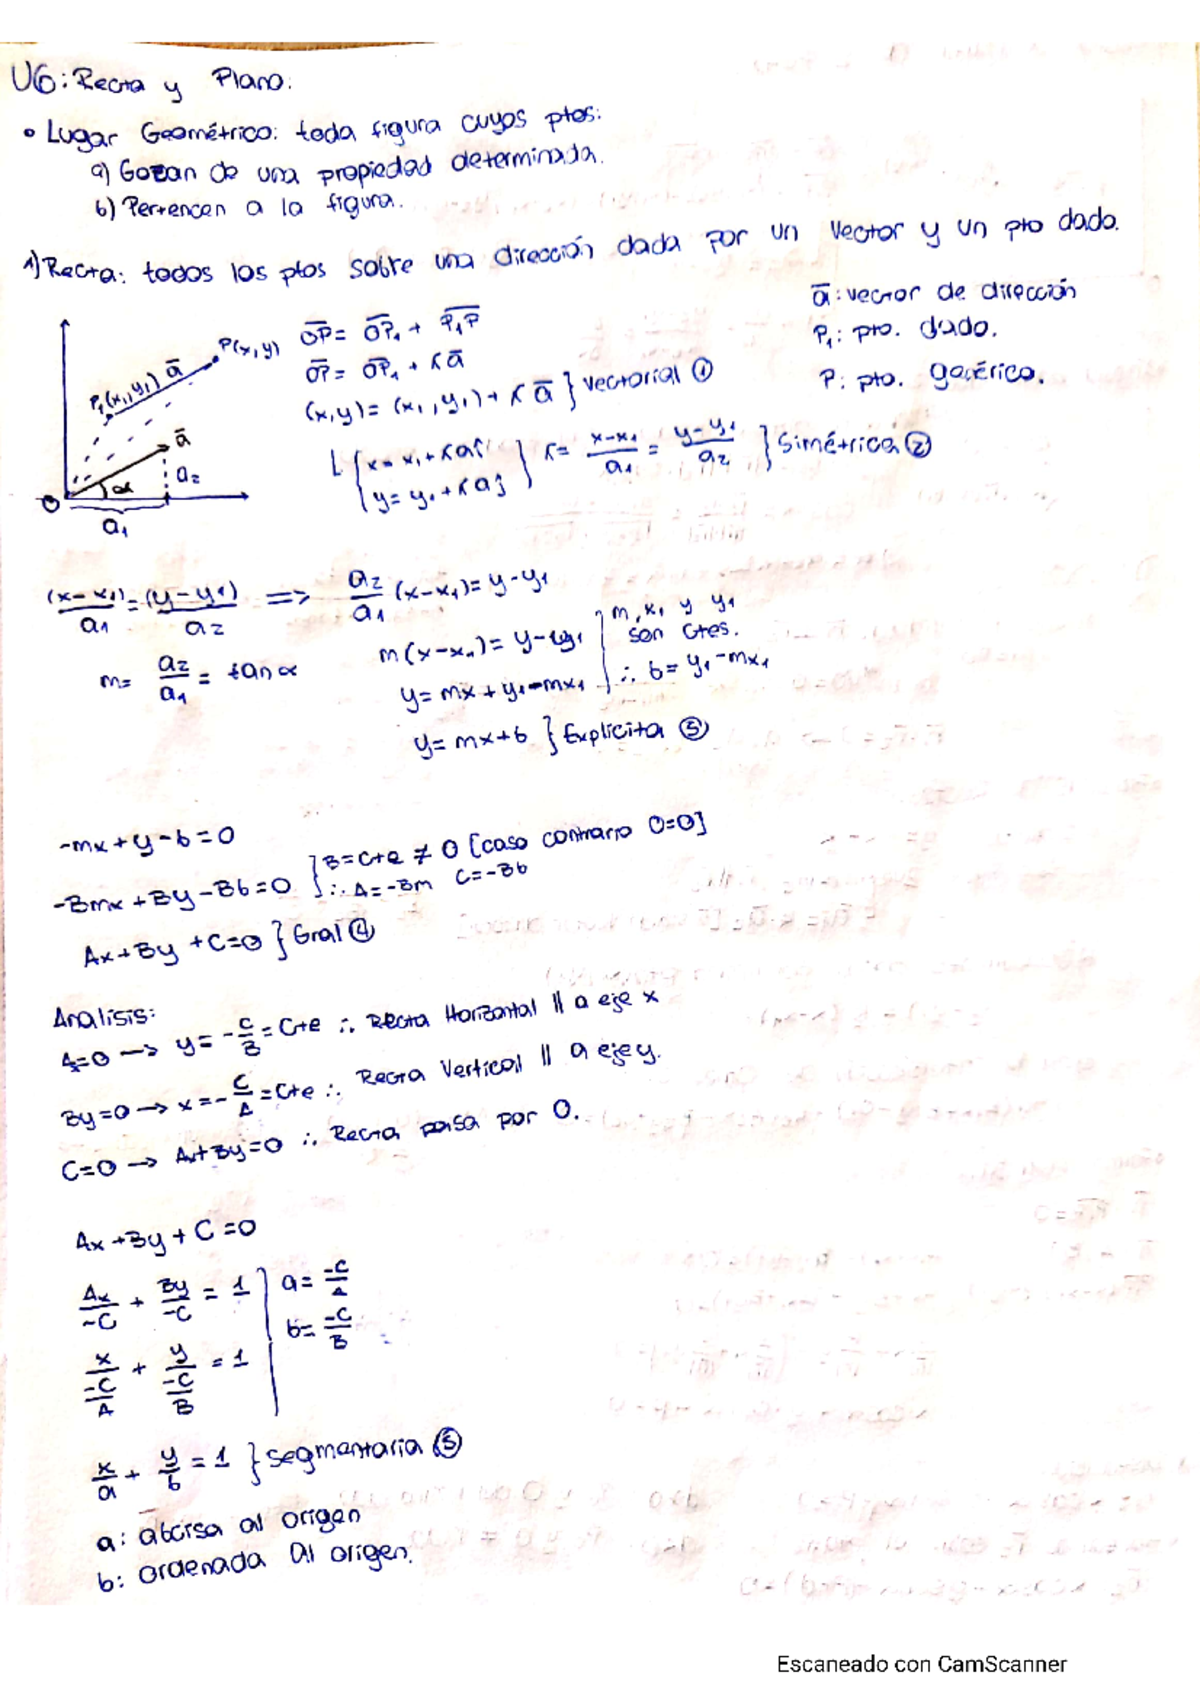 U6: Recta y Plano:
• Lugar Geométrico: toda figura cuyos ptos:
a) Gozan de una propiedad determinada.
b) Pertencen a la figura.
1) Recta: todos los ptos sobre una dirección dada por un vector y un pto dado.
a̅: vector de dirección
P₁: pto. dado.
P: pto. genérico.
P(x,y)
P₁(x₁,y₁) a̅
a̅
a₂
α
O
a₁
O̅P̅ = O̅P̅₁ + P̅₁P̅
O̅P̅ = O̅P̅₁ + ʎa̅
(x,y) = (x₁,y₁) + ʎ a̅ } vectorial ①
L { x = x₁ + ʎaî
y = y₁ + ʎaj } ʎ = (x-x₁)/a₁ = (y-y₁)/a₂ } Simétrica ②
(x-x₁)/a₁ = (y-y₁)/a₂ => a₂/a₁ (x-x₁) = y-y₁
m = a₂/a₁ = tan α
m(x-x₁) = y-y₁ } m, x₁ y y₁ son Ctes.
y = mx + y₁ - mx₁ } ∴ b = y₁ - mx₁
y = mx+b } Explícita ③
-mx + y - b = 0
-Bmx + By - Bb = 0 } B = Cte ≠ 0 [caso contrario 0=0]
∴ A = -Bm C = -Bb
Ax + By + C = 0 } Gral ④
Analisis:
A=0 → y = -C/B = Cte ∴ Recta Horizontal || a eje x
By=0 → x = -C/A = Cte ∴ Recta Vertical || a eje y.
C=0 → Ax+By=0 ∴ Recta pasa por 0.
Ax + By + C = 0
Ax/-C + By/-C = 1 } a = -C/A
x/(-C/A) + y/(-C/B) = 1 } b = -C/B
x/a + y/b = 1 } segmentaria ⑤
a: abcisa al origen
b: ordenada al origen.
Escaneado con CamScanner